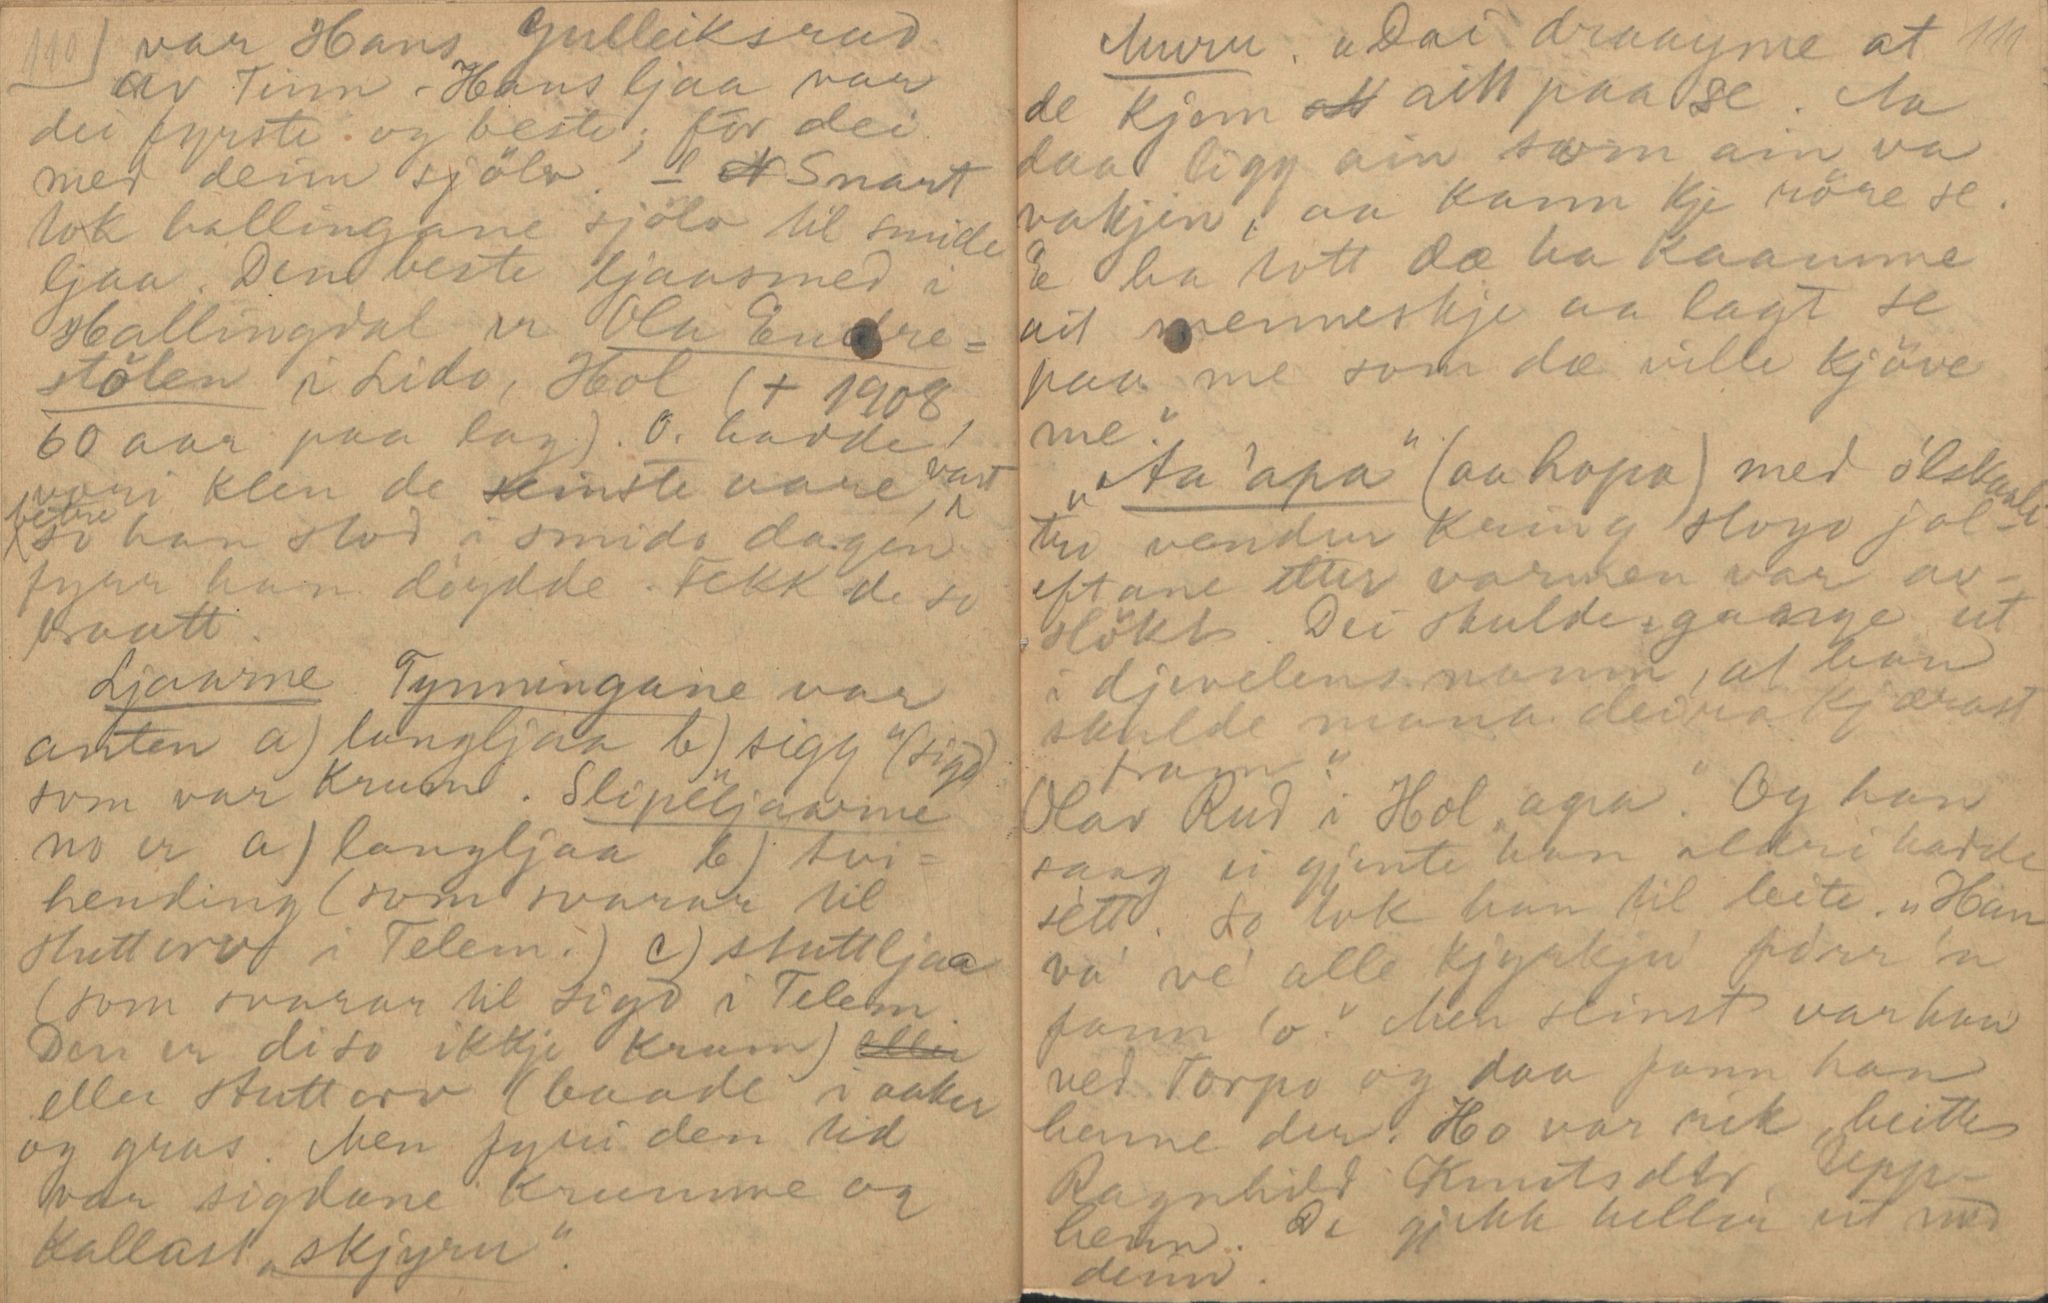 110) var Hans Gulleiksrud
av Tinn. Hans ljaa var
dei fyrste og beste, för dei
med deim sjölv. Snart
tok hallingane sjölv til smide
ljaa. Den beste ljaasmed i
Hallingdal er Ola Endre=
stölen i Lido, Hol († 1908
60 aar paa lag). O. hadde
vori klen de seinste aare, vart
betre
so han stod i smido dagen
fyrr han döydde. Fekk de so
braatt.
Ljaarne Tynningane var
anten a) langljaa b) sigg" (sigd)
som var krum. Slipeljaarne
no er a) langljaa b) tvi=
hending (som svarar til
stuttorv i Telem.) c) stuttljaa
(som svarar til sigd i Telem.
Den er diso ikkje krum) eller
eller stuttorv (baade i aaker
og gras. Men fyrr i den tid
var sigdane krumme og
kallast "skjyru".
111
Muru. "Dai draayme at
de kjem att aitt paa se. Aa
daa ligg ain som ain va
vakjin, aa kann kje röre se.
E ha tott dæ ha kaamme
ait menneskje aa lagt se
paa me som dæ ville kjöve
me".
"Aa 'apa" (aa hapa) med ölskaali
tri vendur kring stogo jol-
eftane etter varmen var av-
slökt. Dei skulde gaange ut
i djevelens namn, at han
skulde mana deira kjærast
fram"
Olav Rud i Hol "apa". Og han
saag ei gjente han aldri hadde
sett. So tok han til leite. "Han
va' ve' alle kjyrkju' förr 'n
fann 'o". Men seinst var han
ved Torpo og daa fann han
henne der. Ho var rik, heitte
Ragnhild Knutsdtr. Upp-
heim. De gjekk heller ut med
deim.